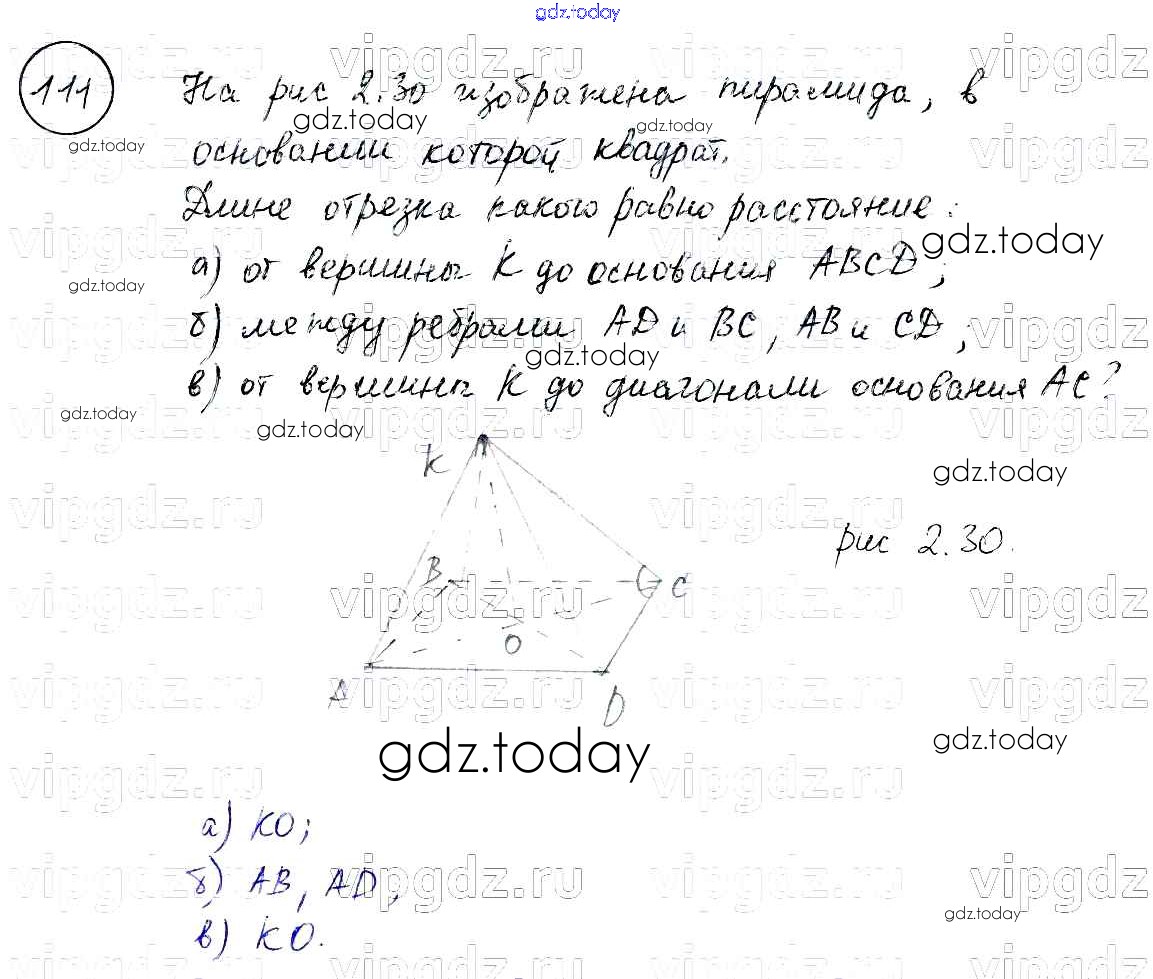 gdz.today
111
На рис 2.30 изображена пирамида, в
основании которой квадрат.
Длине отрезка какого равно расстояние:
а) от вершины K до основания ABCD;
б) между ребрами AD и BC, AB и CD;
в) от вершины K до диагонали основания AC?
K
рис 2.30.
B
C
O
A
D
а) KO;
б) AB, AD,
в) KO.
gdz.today
vipgdz.ru